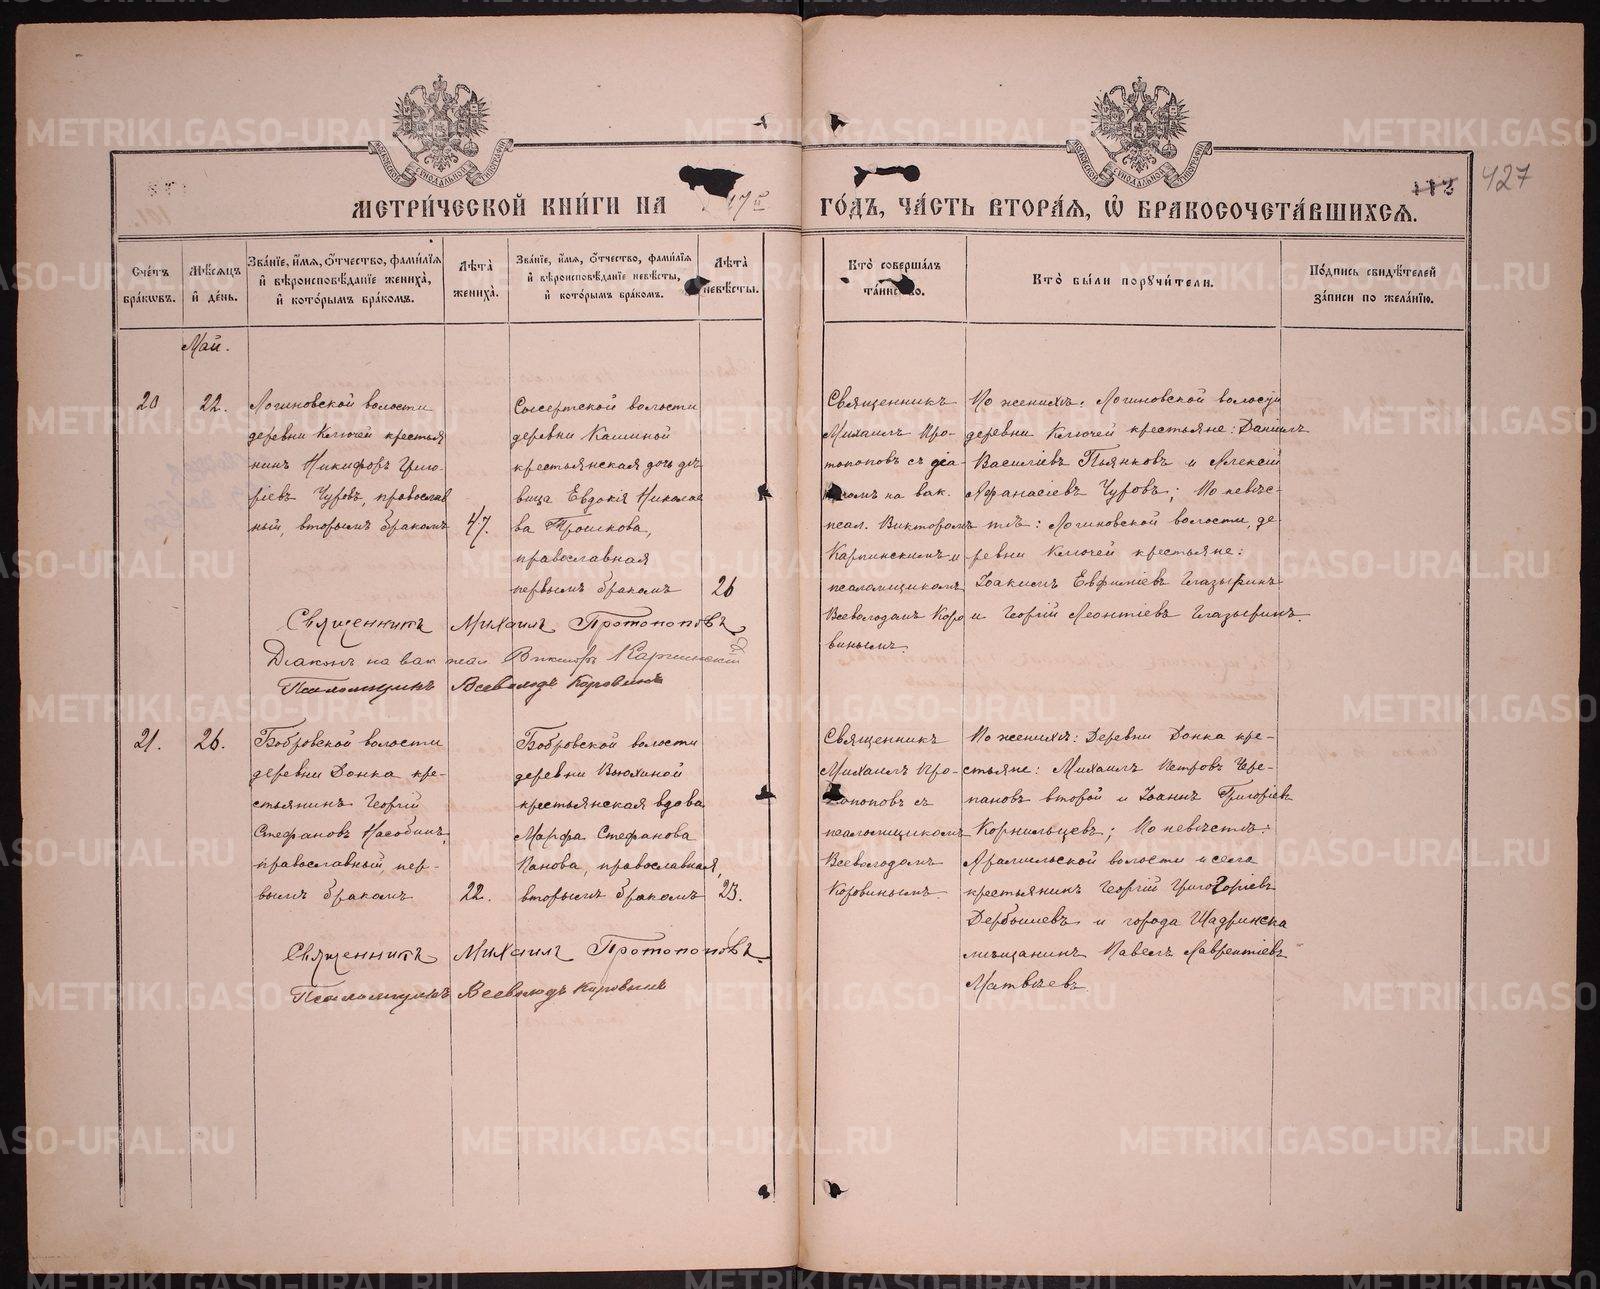 МЕТРИ́ЧЕСКОЙ КНИ́ГИ НА 17 ГО́ДЪ, ЧА́СТЬ ВТОРА́Я, Ѡ БРАКОСОЧЕТА́ВШИХСЯ.
113 427
Сче́тъ бра́ковъ.
Мѣ́сяцъ и҆ де́нь.
Зва́нїе, и҆́мя, ѻ҆́тчество, фами́лїя
и҆ вѣроисповѣ́данїе жениха̀,
и҆ кото́рымъ бра́комъ.
Лѣ́та жениха̀.
Зва́нїе, и҆́мя, ѻ҆́тчество, фами́лїя
и҆ вѣроисповѣ́данїе невѣ́сты,
и҆ кото́рымъ бра́комъ.
Лѣ́та невѣ́сты.
Кто̀ соверша́лъ
та́инство.
Кто̀ бы́ли порꙋчи́тели.
По́дпись свидѣ́телей
за́писи по жела́нїю.
Май.
20
22.
Логиновской волости
деревни Ключей крестья
нинъ Никифоръ Григо-
ріевъ Чуровъ, православ
ный, вторымъ бракомъ
47.
Сысертской волости
деревни Кашиной
крестьянская дочь дѣ
вица Евдокія Николае
ва Трошкова,
православная
первымъ бракомъ
26
Священникъ
Михаилъ Про-
топоповъ съ діа-
кономъ на вак.
псал. Викторомъ
Карпинскимъ и
псаломщикомъ
Всеволодомъ Коро
винымъ.
По женихѣ: Логиновской волости
деревни Ключей крестьяне: Даніилъ
Василіевъ Пьянковъ и Алексій
Афанасіевъ Чуровъ; По невѣс-
тѣ: Логиновской волости, де
ревни Ключей крестьяне:
Іоакимъ Евфиміевъ Глазыринъ
и Георгій Леонтіевъ Глазыринъ.
Священникъ Михаилъ Протопоповъ
Діаконъ на вак псал Викторъ Карпинскій
Псаломщикъ Всеволодъ Коровинъ
21.
26.
Бобровской волости
деревни Донка кре-
стьянинъ Георгій
Стефановъ Насобинъ,
православный, пер-
вымъ бракомъ
22.
Бобровской волости
деревни Вьюхиной
крестьянская вдова
Марфа Стефанова
Панова, православная,
вторымъ бракомъ
23.
Священникъ
Михаилъ Про-
топоповъ съ
псаломщикомъ
Всеволодомъ
Коровинымъ.
По женихѣ: Деревни Донка кре-
стьяне: Михаилъ Петровъ Чере-
пановъ второй и Іоаннъ Григоріевъ
Корнильцевъ; По невѣстѣ:
Арамильской волости и села
крестьянинъ Георгій Григоріевъ
Дербышевъ и города Шадринска
мѣщанинъ Павелъ Лаврентіевъ
Матвѣевъ.
Священникъ Михаилъ Протопоповъ.
Псаломщикъ Всеволодъ Коровинъ
METRIKI.GASO-URAL.RU